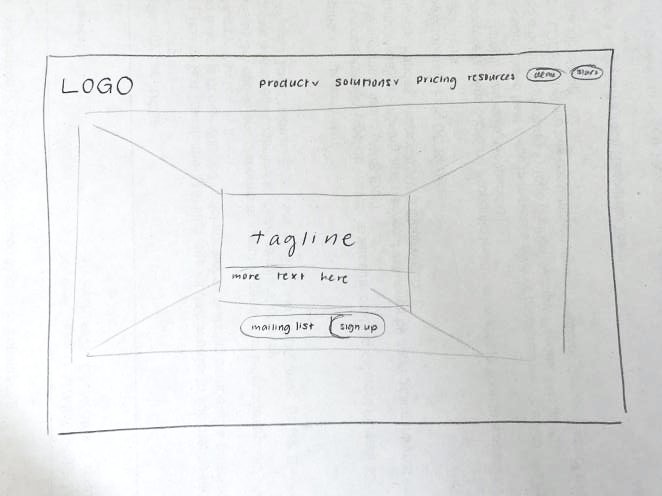 LOGO product solutions pricing resources demo start
tagline
more text here
mailing list sign up